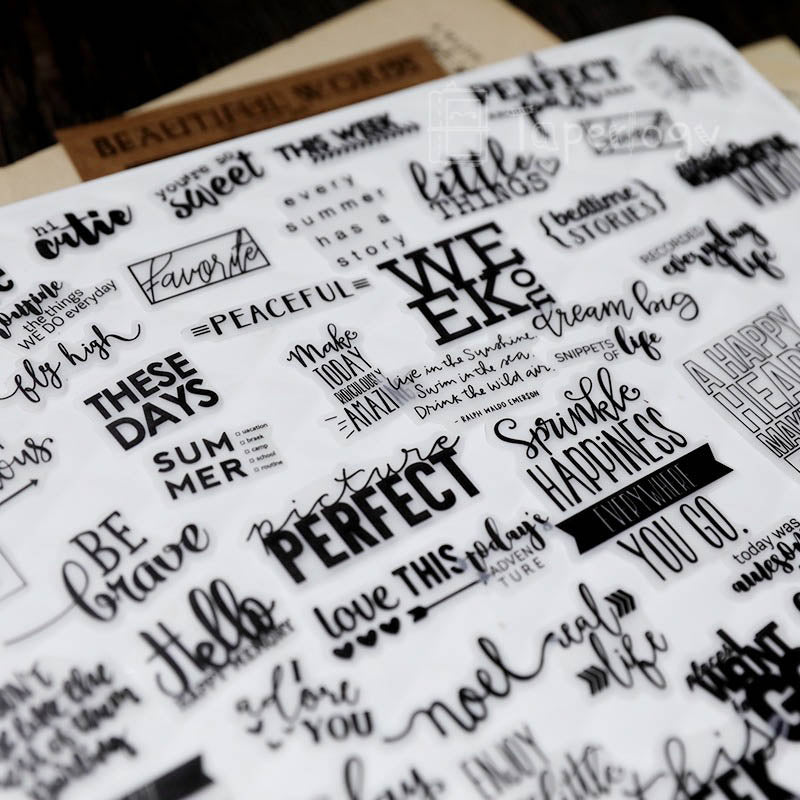 BEAUTIFUL WORDS
PERFECT
Taperlogy
THIS WEEK
you're so
sweet
little
THINGS
hi
cutie
every
summer
has a
story
{bedtime
STORIES}
RECORDED
everyday
life
favorite
WEEK
the things
WE DO everyday
PEACEFUL
dream big
fly high
make
TODAY
RIDICULOUSLY
AMAZING
live in the Sunshine
Swim in the sea.
Drink the wild air.
- RALPH WALDO EMERSON
SNIPPETS
OF life
A HAPPY
THESE
DAYS
SUM
MER
vacation
break
camp
school
routine
Sprinkle
HAPPINESS
EVERYWHERE
YOU GO.
picture
PERFECT
BE
brave
love THIS
today's
ADVEN
TURE
today was
awesome
Hello
HAPPY MEMORY
real
life
noel
love
YOU
WANT
ENJOY
little
this